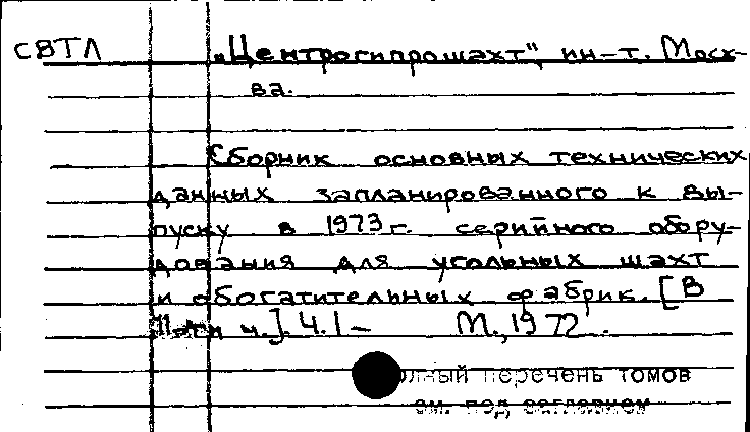 СВТЛ „Центрогипрошахт", ин-т. Моск-
ва.
Сборник основных технических
данных запланированного к вы-
пуску в 1973 г. серийного обору-
дования для угольных шахт
и обогатительных фабрик. [В
ч.]. Ч. 1 – М., 1972.
перечень томов
см. под заглавием